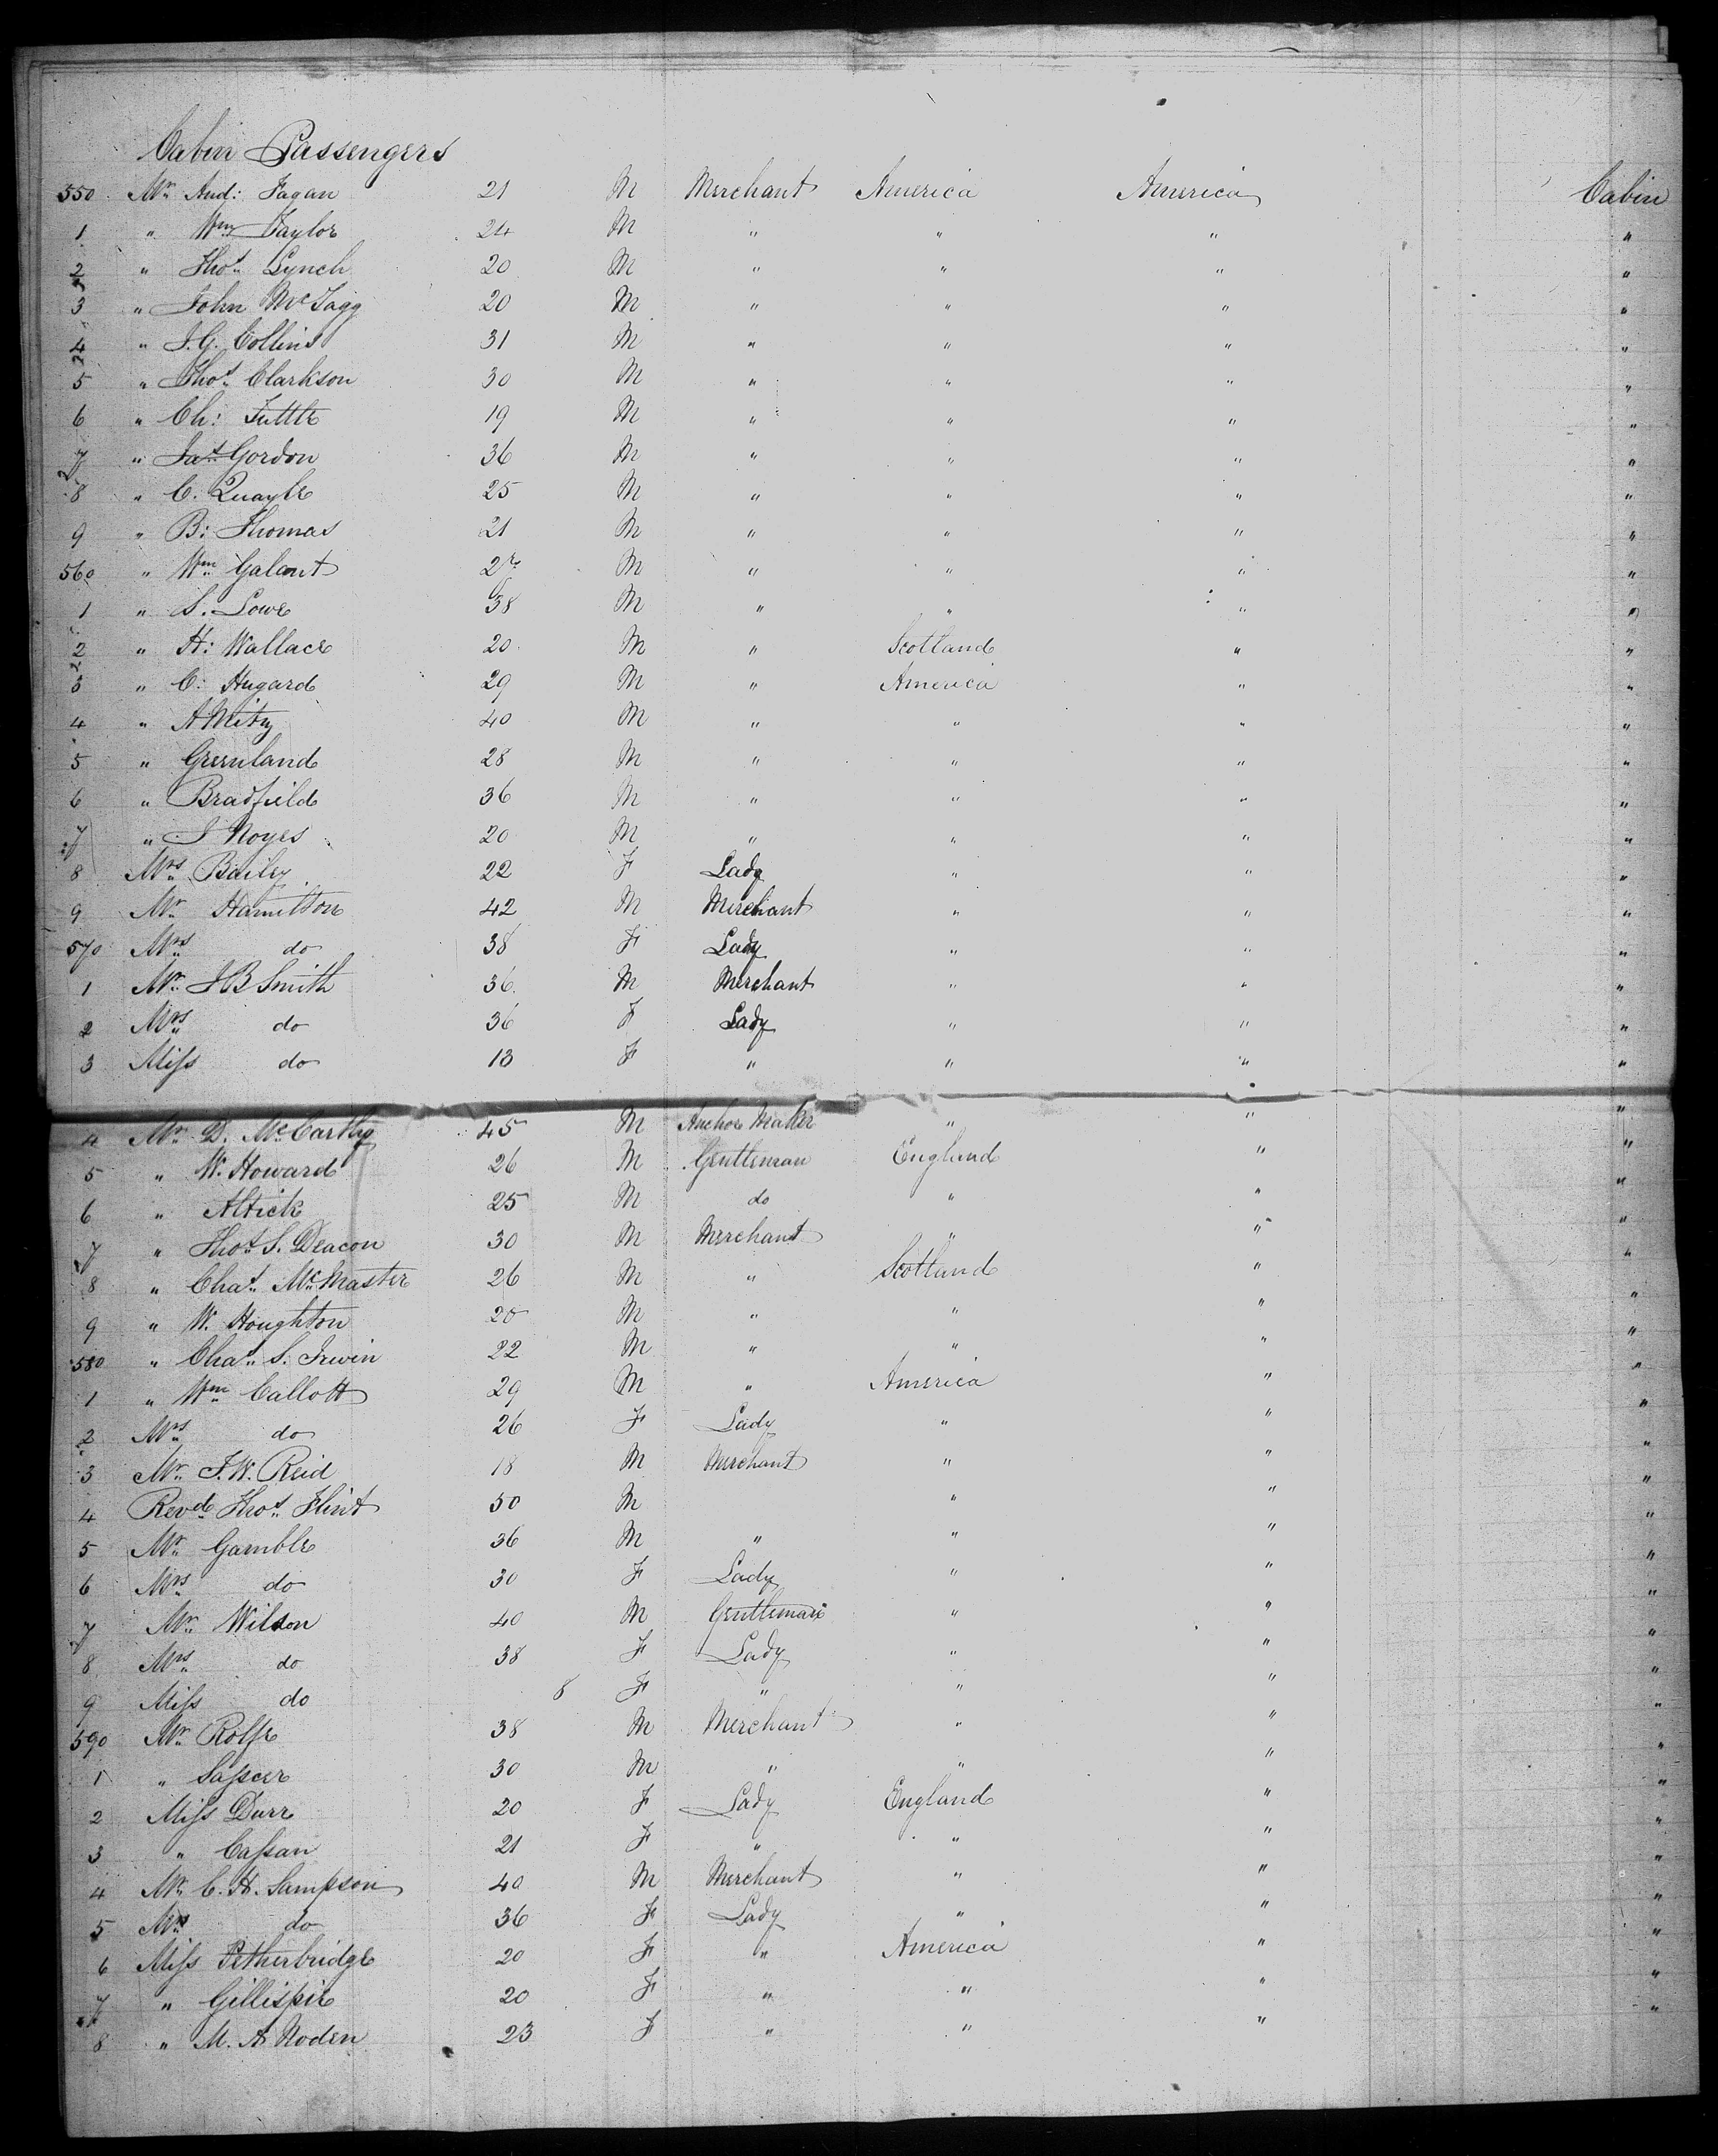 Cabin Passengers
550 Mr. And: Fagan 21 M Merchant America America Cabin
1 " Wm Taylor 24 M " " " "
2 " Thos. Lynch 20 M " " " "
3 " John McTagg 20 M " " " "
4 " J.G. Collins 31 M " " " "
5 " Thos. Clarkson 30 M " " " "
6 " Ch: Tuttle 19 M " " " "
7 " Jas. Gordon 36 M " " " "
8 " C. Quayle 25 M " " " "
9 " B: Thomas 21 M " " " "
560 " Wm. Galant M " " " "
1 " S. Lowe 38 M " " " "
2 " H: Wallace 20 M " Scotland " "
3 " C: Hugard 29 M " America " "
4 " 40 M " " " "
5 " Greenland 28 M " " " "
6 " Bradfield 36 M " " " "
7 " J Noyes 20 M " " " "
8 Mrs. Bailey 22 F Lady " " "
9 Mr. Hamilton 42 M Merchant " " "
570 Mrs. do 38 F Lady " " "
1 Mr. J B Smith 36 M Merchant " " "
2 Mrs. do 36 F Lady " " "
3 Miss do 13 F " " " "
4 Mr. D. McCarthy 45 M Anchor Maker " " "
5 " W. Howard 26 M Gentleman England " "
6 " Altick 25 M do " " "
7 " Thos. S. Deacon 30 M Merchant " " "
8 " Chas. McMaster 26 M " Scotland " "
9 " W. Houghton 20 M " " " "
580 " Chas. S. Irwin 22 M " " " "
1 " Wm Callott 29 M " America " "
2 Mrs. do 26 F Lady " " "
3 Mr. J.W. Reid 18 M Merchant " " "
4 Revd. Thos. Flint 50 M " " "
5 Mr. Gamble 36 M " " " "
6 Mrs. do 30 F Lady " " "
7 Mr. Wilson 40 M Gentleman " " "
8 Mrs. do 38 F Lady " " "
9 Miss do 8 F " " " "
590 Mr. Rolfe 38 M Merchant " " "
1 " Sasscer 30 M " " " "
2 Miss Durr 20 F Lady England " "
3 " Cassan 21 F " " " "
4 Mr. C. H. Sampson 40 M Merchant " " "
5 Mrs do 36 F Lady " " "
6 Miss Petherbridge 20 F " America " "
7 " Gillispie 20 F " " " "
8 " M. A. Noden 23 F " " " "